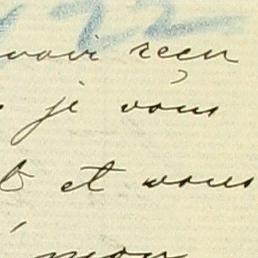 172
avoir reçu
je vous
et vous
mon